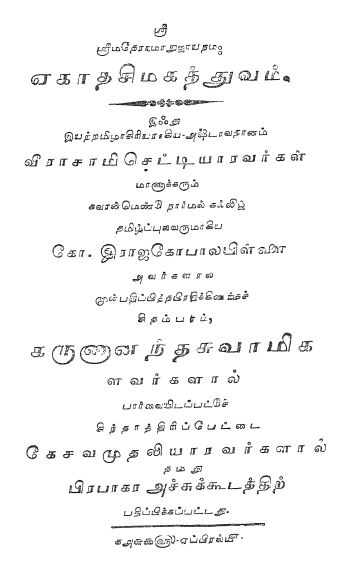 ஸ்ரீ
ஸ்ரீமதேராமாநுஜாயநம:
ஏகாதசிமகத்துவம்.
இஃது
இயற்றமிழாசிரியராகிய-அஷ்டாவதானம்
வீராசாமிசெட்டியாரவர்கள்
மாணாக்கரும்
கவரன்மெண்டு நார்மல் கல்லிஜ்
தமிழ்ப்புலவருமாகிய
கோ. இராஜகோபாலபிள்ளை
அவர்களால்
முன்பதிப்பித்தபிரதிக்கிணங்கச்
சிதம்பரம்,
கருணானந்தசுவாமிக
ளவர்களால்
பார்வையிடப்பட்டுச்
சிந்தாத்திரிப்பேட்டை
கேசவமுதலியாரவர்களால்
தமது
பிரபாகர அச்சுக்கூடத்திற்
பதிப்பிக்கப்பட்டது.
ஏப்பிரல்மீ.